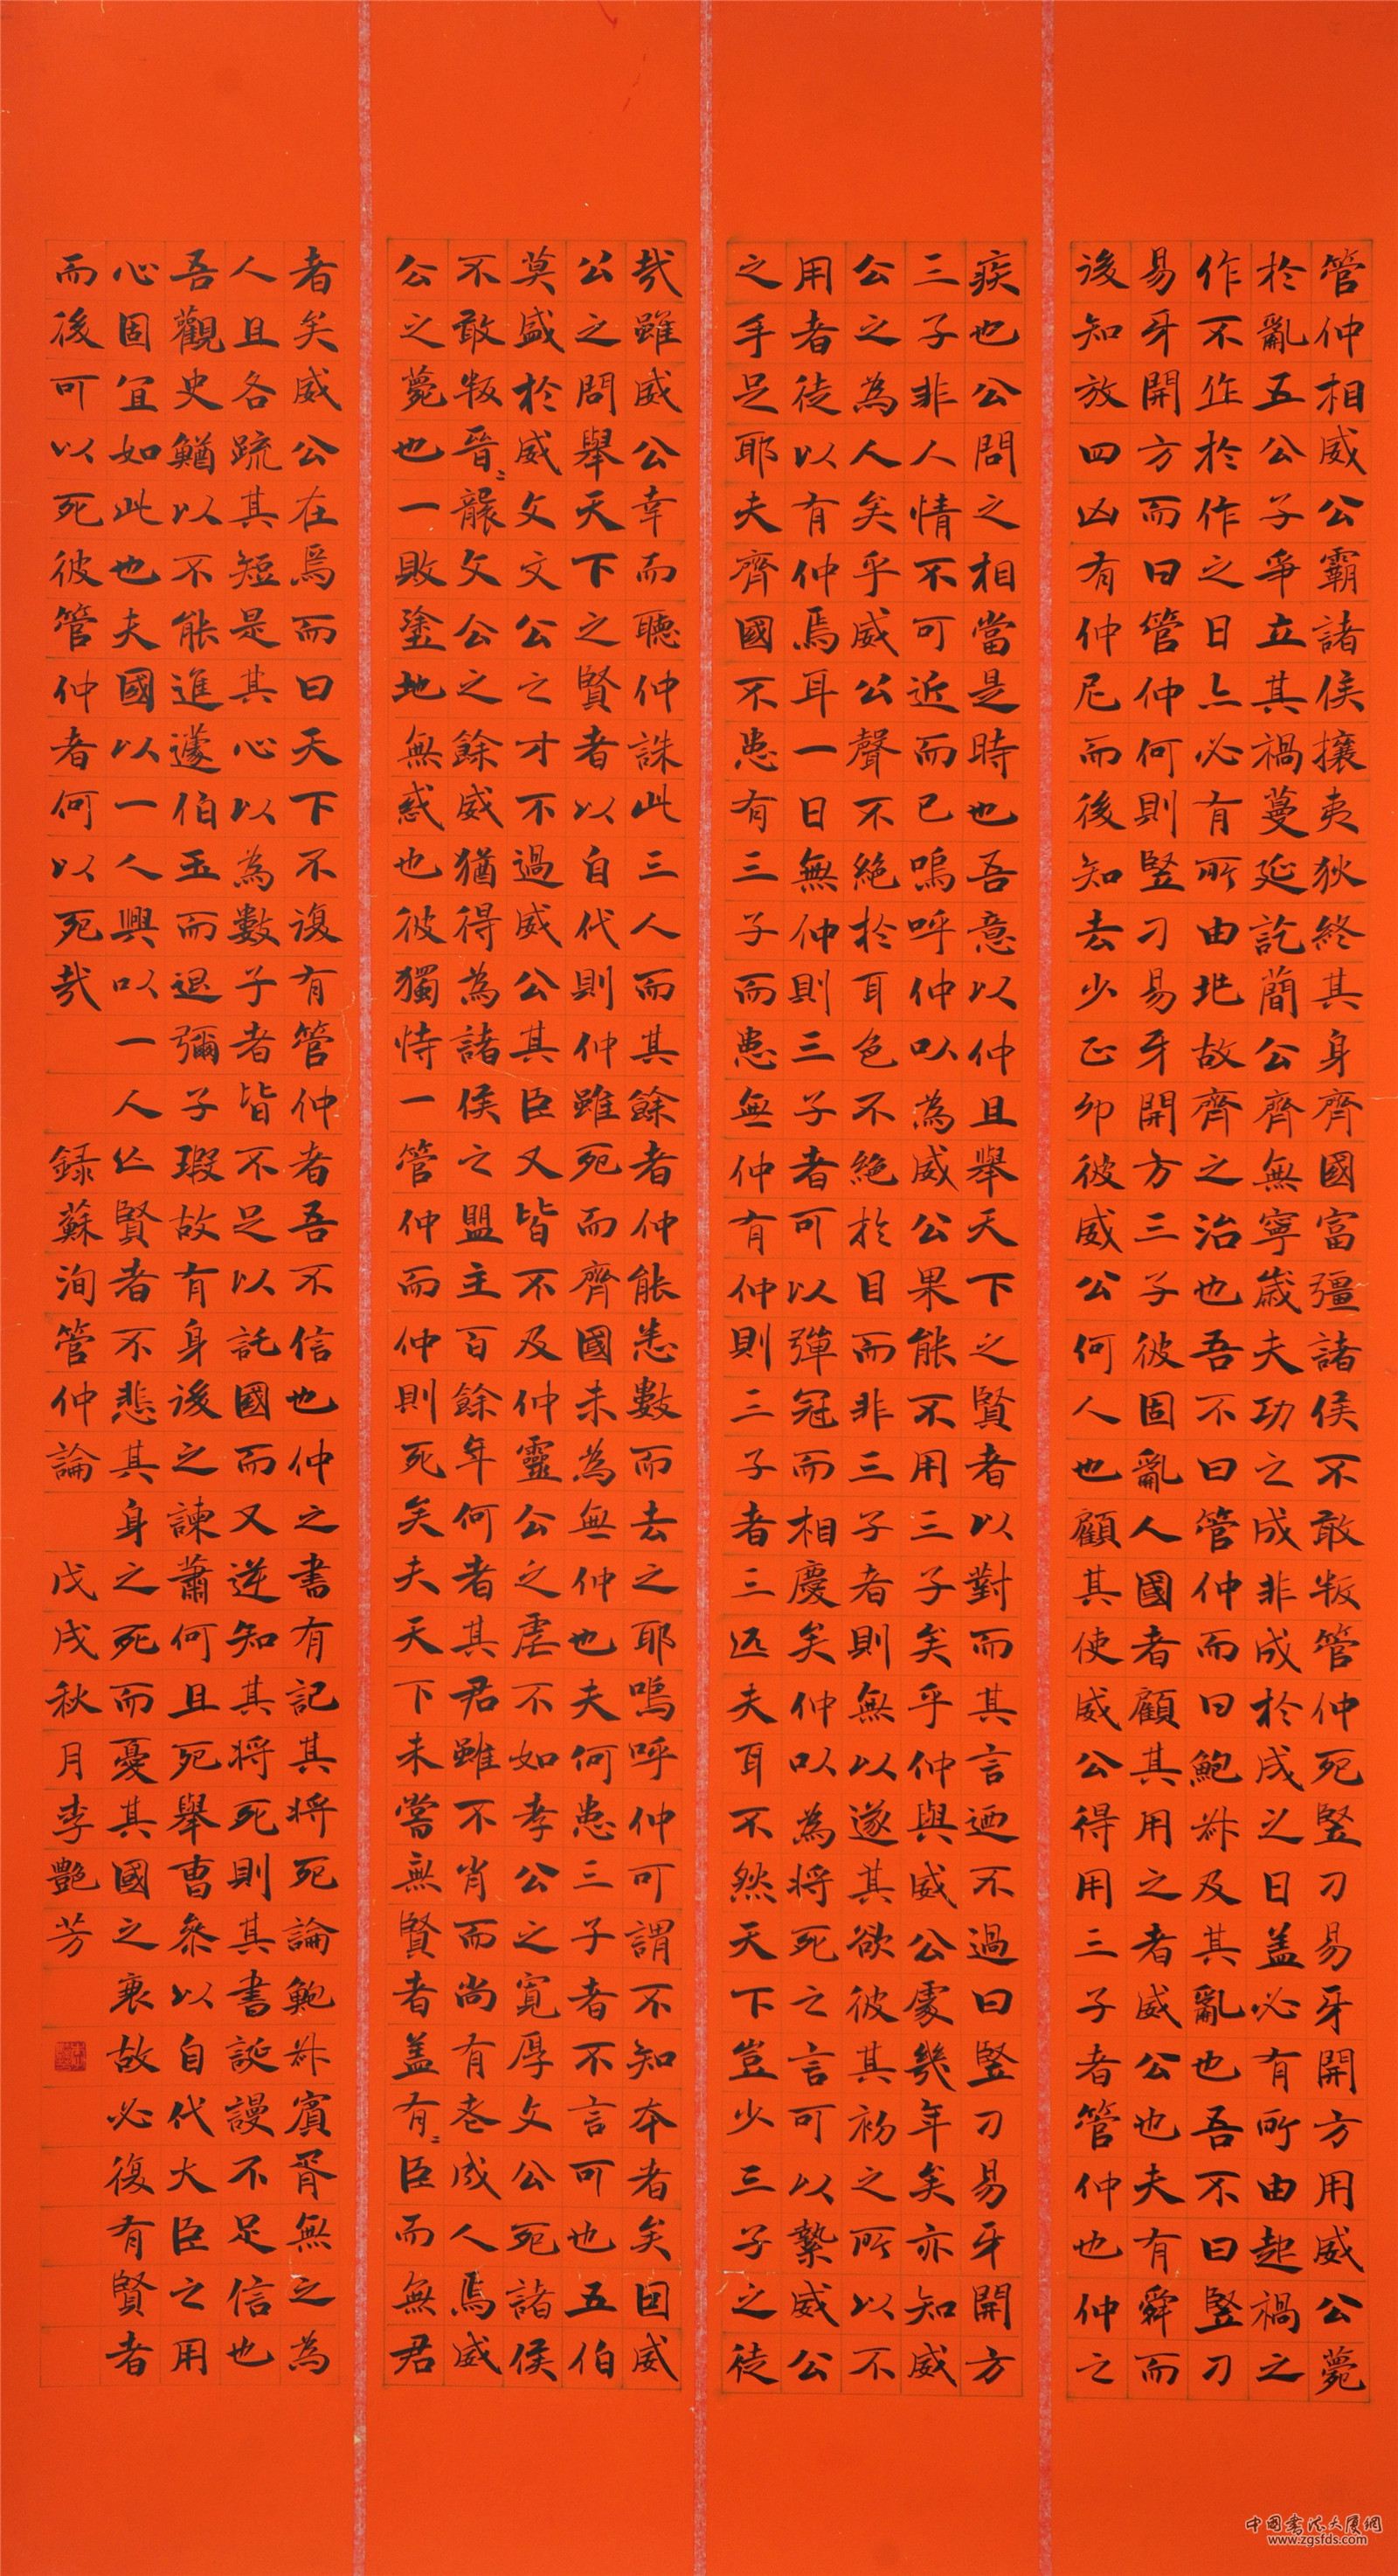 管仲相威公霸諸侯攘夷狄終其身齊國富彊諸侯不敢叛管仲死豎刀易牙開方用威公薨
於亂五公子爭立其禍蔓延訖簡公齊無寧歲夫功之成非成於成之日盖必有所由起禍之
作不作於作之日亦必有所由兆故齊之治也吾不曰管仲而曰鮑叔及其亂也吾不曰豎刀
易牙開方而曰管仲何則豎刁易牙開方三子彼固亂人國者顧其用之者威公也夫有舜而
後知放四凶有仲尼而後知去少正卯彼威公何人也顧其使威公得用三子者管仲也仲之
疾也公問之相當是時也吾意以仲且舉天下之賢者以對而其言迺不過曰豎刀易牙開方
三子非人情不可近而已嗚呼仲以為威公果能不用三子矣乎仲與威公處幾年矣亦知威
公之為人矣乎威公聲不絕於耳色不絕於目而非三子者則無以遂其欲彼其初之所以不
用者徒以有仲焉耳一日無仲則三子者可以彈冠而相慶矣仲以為將死之言可以縶威公
之手足耶夫齊國不患有三子而患無仲有仲則三子者三匹夫耳不然天下豈少三子之徒
哉雖威公幸而聽仲誅此三人而其餘者仲能悉數而去之耶嗚呼仲可謂不知本者矣因威
公之問舉天下之賢者以自代則仲雖死而齊國未為無仲也夫何患三子者不言可也五伯
莫盛於威文文公之才不過威公其臣又皆不及仲靈公之虐不如孝公之寬厚文公死諸侯
不敢叛晉〻襲文公之餘威猶得為諸侯之盟主百餘年何者其君雖不肖而尚有老成人焉威
公之薨也一敗塗地無惑也彼獨恃一管仲而仲則死矣夫天下未嘗無賢者盖有〻臣而無君
者矣威公在焉而曰天下不復有管仲者吾不信也仲之書有記其將死論鮑叔賓胥無之為
人且各疏其短是其心以為數子者皆不足以託國而又逆知其將死則其書誕謾不足信也
吾觀史鰌以不能進蘧伯玉而退彌子瑕故有身後之諫蕭何且死舉曹參以自代大臣之用
心固宜如此也夫國以一人興以一人亡賢者不悲其身之死而憂其國之衰故必復有賢者
而後可以死彼管仲者何以死哉 録蘇洵管仲論 戊戌秋月李艷芳
中國書法大厦網
www.zgsfds.com